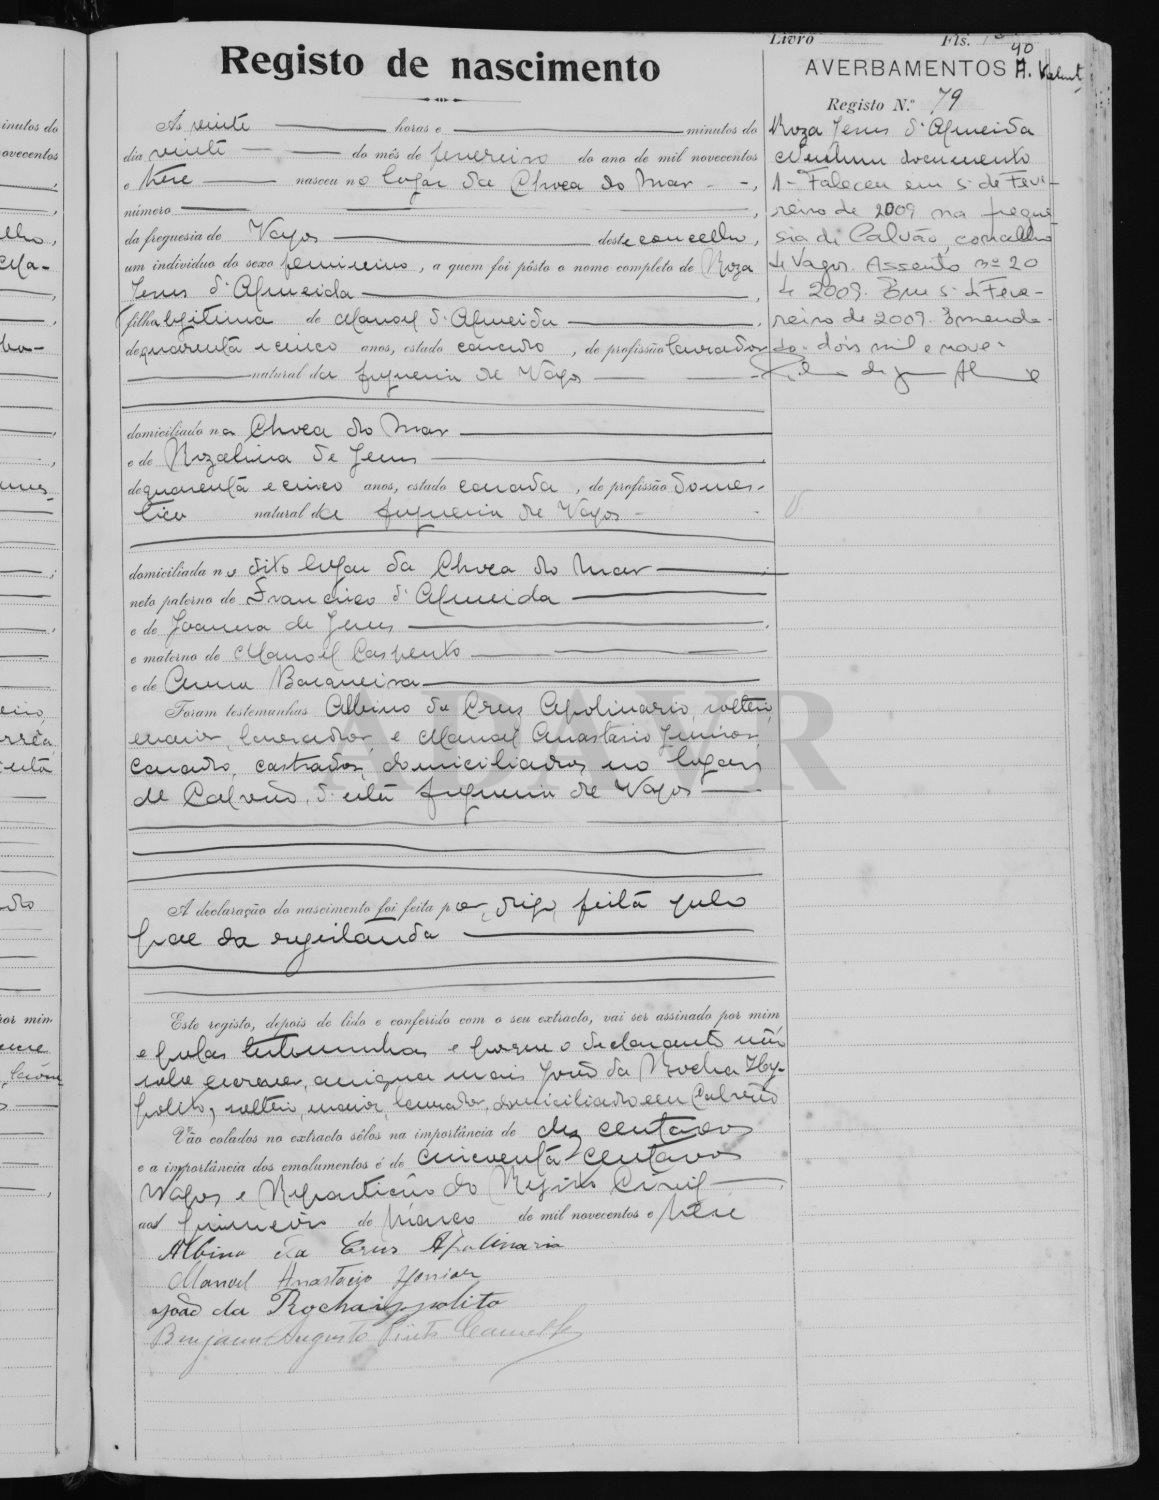 Livro Fls.
40
Registo de nascimento
AVERBAMENTOS
Registo N.º 79
Às vinte horas e minutos do
dia vinte do mês de fevereiro do ano de mil novecentos
e treze nasceu no logar da Choca do Mar,
número
da freguesia de Vagos deste concelho,
um indivíduo do sexo feminino, a quem foi pôsto o nome completo de Roza
Jesus d'Almeida
filha legitima de Manoel d'Almeida
de quarenta e cinco anos, estado casado, de profissão lavrador
natural da freguesia de Vagos
domiciliado na Choca do Mar
e de Rozalina de Jesus
de quarenta e cinco anos, estado casada, de profissão domes-
tica natural da freguesia de Vagos
domiciliada no dito logar da Choca do Mar
neto paterno de Francisco d'Almeida
e de Joanna de Jesus
e materno de Manoel
e de Anna
Foram testemunhas Albino da Cruz Apolinario, solteiro,
maior, lavrador, e Manoel Anastacio Junior,
casado, domiciliados no logar
de Calvão, d'esta freguesia de Vagos
A declaração do nascimento foi feita por, digo, feita pelo
pae da registanda
Este registo, depois de lido e conferido com o seu extracto, vai ser assinado por mim
e pelas testemunhas e porque o declarante não
sabe escrever, assigna mais João da Rocha Hy-
polito, solteiro, maior, lavrador, domiciliado em Calvão
Vão colados no extracto sêlos na importância de dez centavos
e a importância dos emolumentos é de cincoenta centavos
Vagos e Repartição do Registo Civil
aos primeiro de Março de mil novecentos e treze
Albino da Cruz Apolinario
Manoel Anastacio Junior
João da Rocha ippolito
Benjamin Augusto
Roza Jesus d'Almeida
Nenhum documento
1 - Faleceu em 5 de Feve-
reiro de 2009 na fregue-
sia de Calvão, concelho
de Vagos. Assento nº 20
de 2009. Em 5 de Feve-
reiro de 2009. Emenda-
do - dois mil e nove -
ADAVR